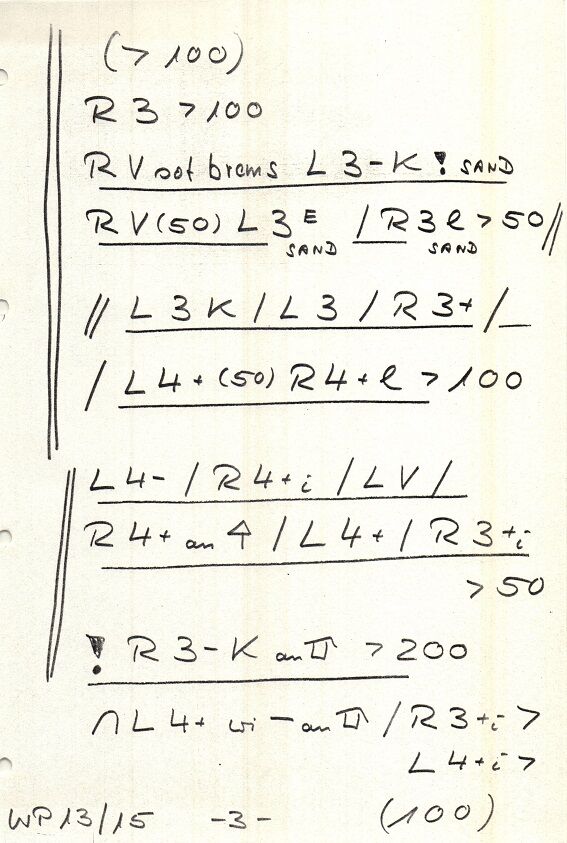 (> 100)
R 3 > 100
R V sof brems L 3 - K ! SAND
R V (50) L 3 E / R 3 l > 50 //
SAND SAND
// L 3 K / L 3 / R 3+ /
/ L 4+ (50) R 4+ l > 100
L 4- / R 4+ i / L V /
R 4+ an / L 4+ / R 3+ i
> 50
! R 3 - K an > 200
∩ L 4+ wi - an / R 3+ i >
L 4+ i >
WP 13/15 -3- (100)